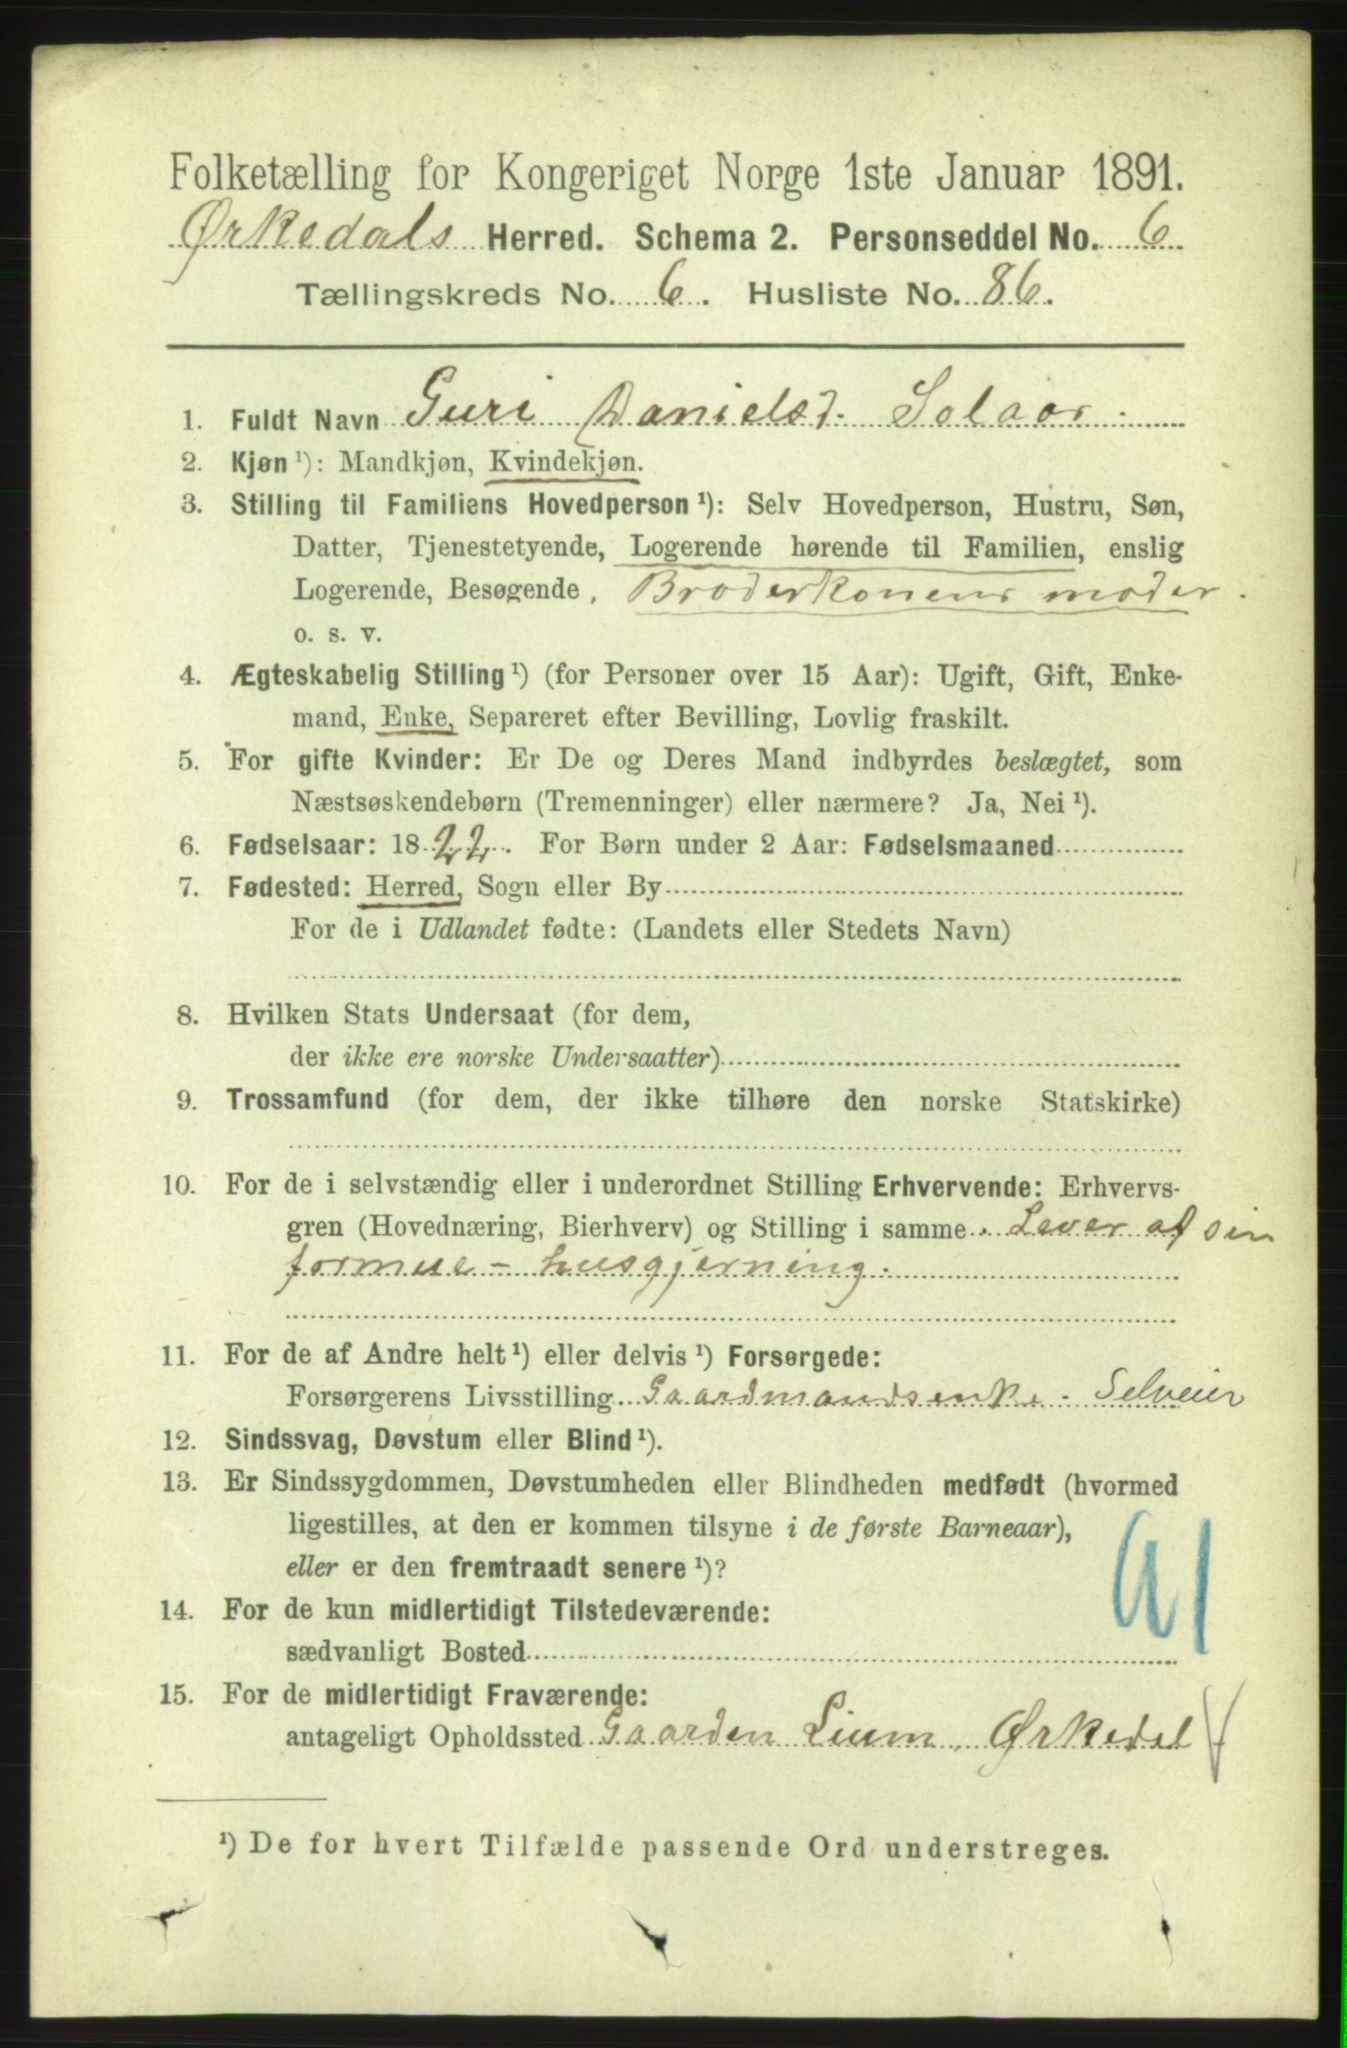 Folketælling for Kongeriget Norge 1ste Januar 1891.
Ørkedals Herred. Schema 2. Personseddel No. 6
Tællingskreds No. 6. Husliste No. 86.
1. Fuldt Navn Guri Danielsd. Solaor.
2. Kjøn ¹): Mandkjøn, Kvindekjøn.
3. Stilling til Familiens Hovedperson ¹): Selv Hovedperson, Hustru, Søn,
Datter, Tjenestetyende, Logerende hørende til Familien, enslig
Logerende, Besøgende. Broderkonens moder.
o. s. v.
4. Ægteskabelig Stilling ¹) (for Personer over 15 Aar): Ugift, Gift, Enke-
mand, Enke, Separeret efter Bevilling, Lovlig fraskilt.
5. For gifte Kvinder: Er De og Deres Mand indbyrdes beslægtet, som
Næstsøskendebørn (Tremenninger) eller nærmere? Ja, Nei ¹).
6. Fødselsaar: 1822. For Børn under 2 Aar: Fødselsmaaned
7. Fødested: Herred, Sogn eller By
For de i Udlandet fødte: (Landets eller Stedets Navn)
8. Hvilken Stats Undersaat (for dem,
der ikke ere norske Undersaatter)
9. Trossamfund (for dem, der ikke tilhøre den norske Statskirke)
10. For de i selvstændig eller i underordnet Stilling Erhvervende: Erhvervs-
gren (Hovednæring, Bierhverv) og Stilling i samme. Lever af sin
formue - husgjerning.
11. For de af Andre helt ¹) eller delvis ¹) Forsørgede:
Forsørgerens Livsstilling Gaardmandsenke. Selveier
12. Sindssvag, Døvstum eller Blind ¹).
13. Er Sindssygdommen, Døvstumheden eller Blindheden medfødt (hvormed
ligestilles, at den er kommen tilsyne i de første Barneaar),
eller er den fremtraadt senere ¹)?
14. For de kun midlertidigt Tilstedeværende:
sædvanligt Bosted
15. For de midlertidigt Fraværende:
antageligt Opholdssted Gaarden Lium, Ørkedal
¹) De for hvert Tilfælde passende Ord understreges.